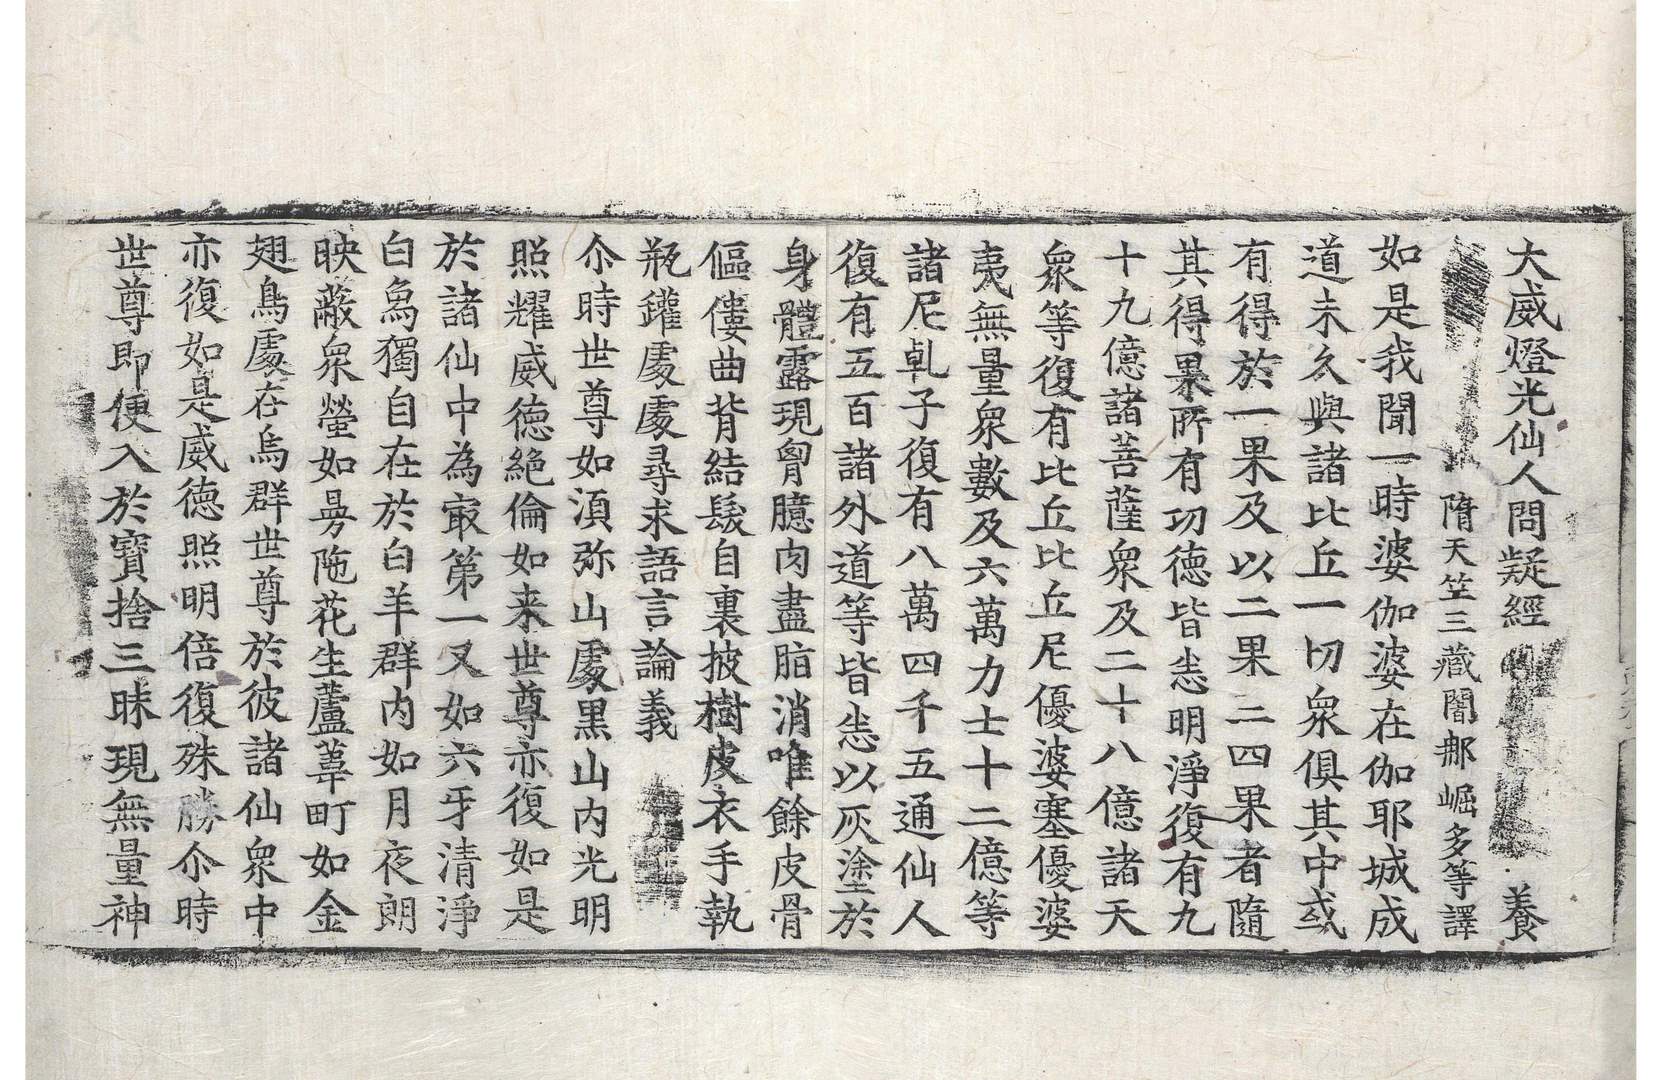 大威燈光仙人問疑經 養
隋天竺三藏闍那崛多等譯
如是我聞一時婆伽婆在伽耶城成
道未久與諸比丘一切衆俱其中或
有得於一果及以二果三四果者隨
其得果所有功德皆悉明淨復有九
十九億諸菩薩衆及二十八億諸天
衆等復有比丘比丘尼優婆塞優婆
夷無量衆數及六萬力士十二億等
諸尼乹子復有八萬四千五通仙人
復有五百諸外道等皆悉以灰塗於
身體露現胷臆肉盡脂消唯餘皮骨
傴僂曲背結髮自裹披樹皮衣手執
瓶鑵處處尋求語言論義
尒時世尊如湏弥山處黑山内光明
照耀威德絶倫如来世尊亦復如是
於諸仙中為㝡第一又如六牙清淨
白烏獨自在於白羊群内如月夜朗
映蔽衆螢如曼陁花生蘆葦町如金
翅鳥處在烏群世尊於彼諸仙衆中
亦復如是威德照明倍復殊勝尒時
世尊即便入於寶捨三昧現無量神